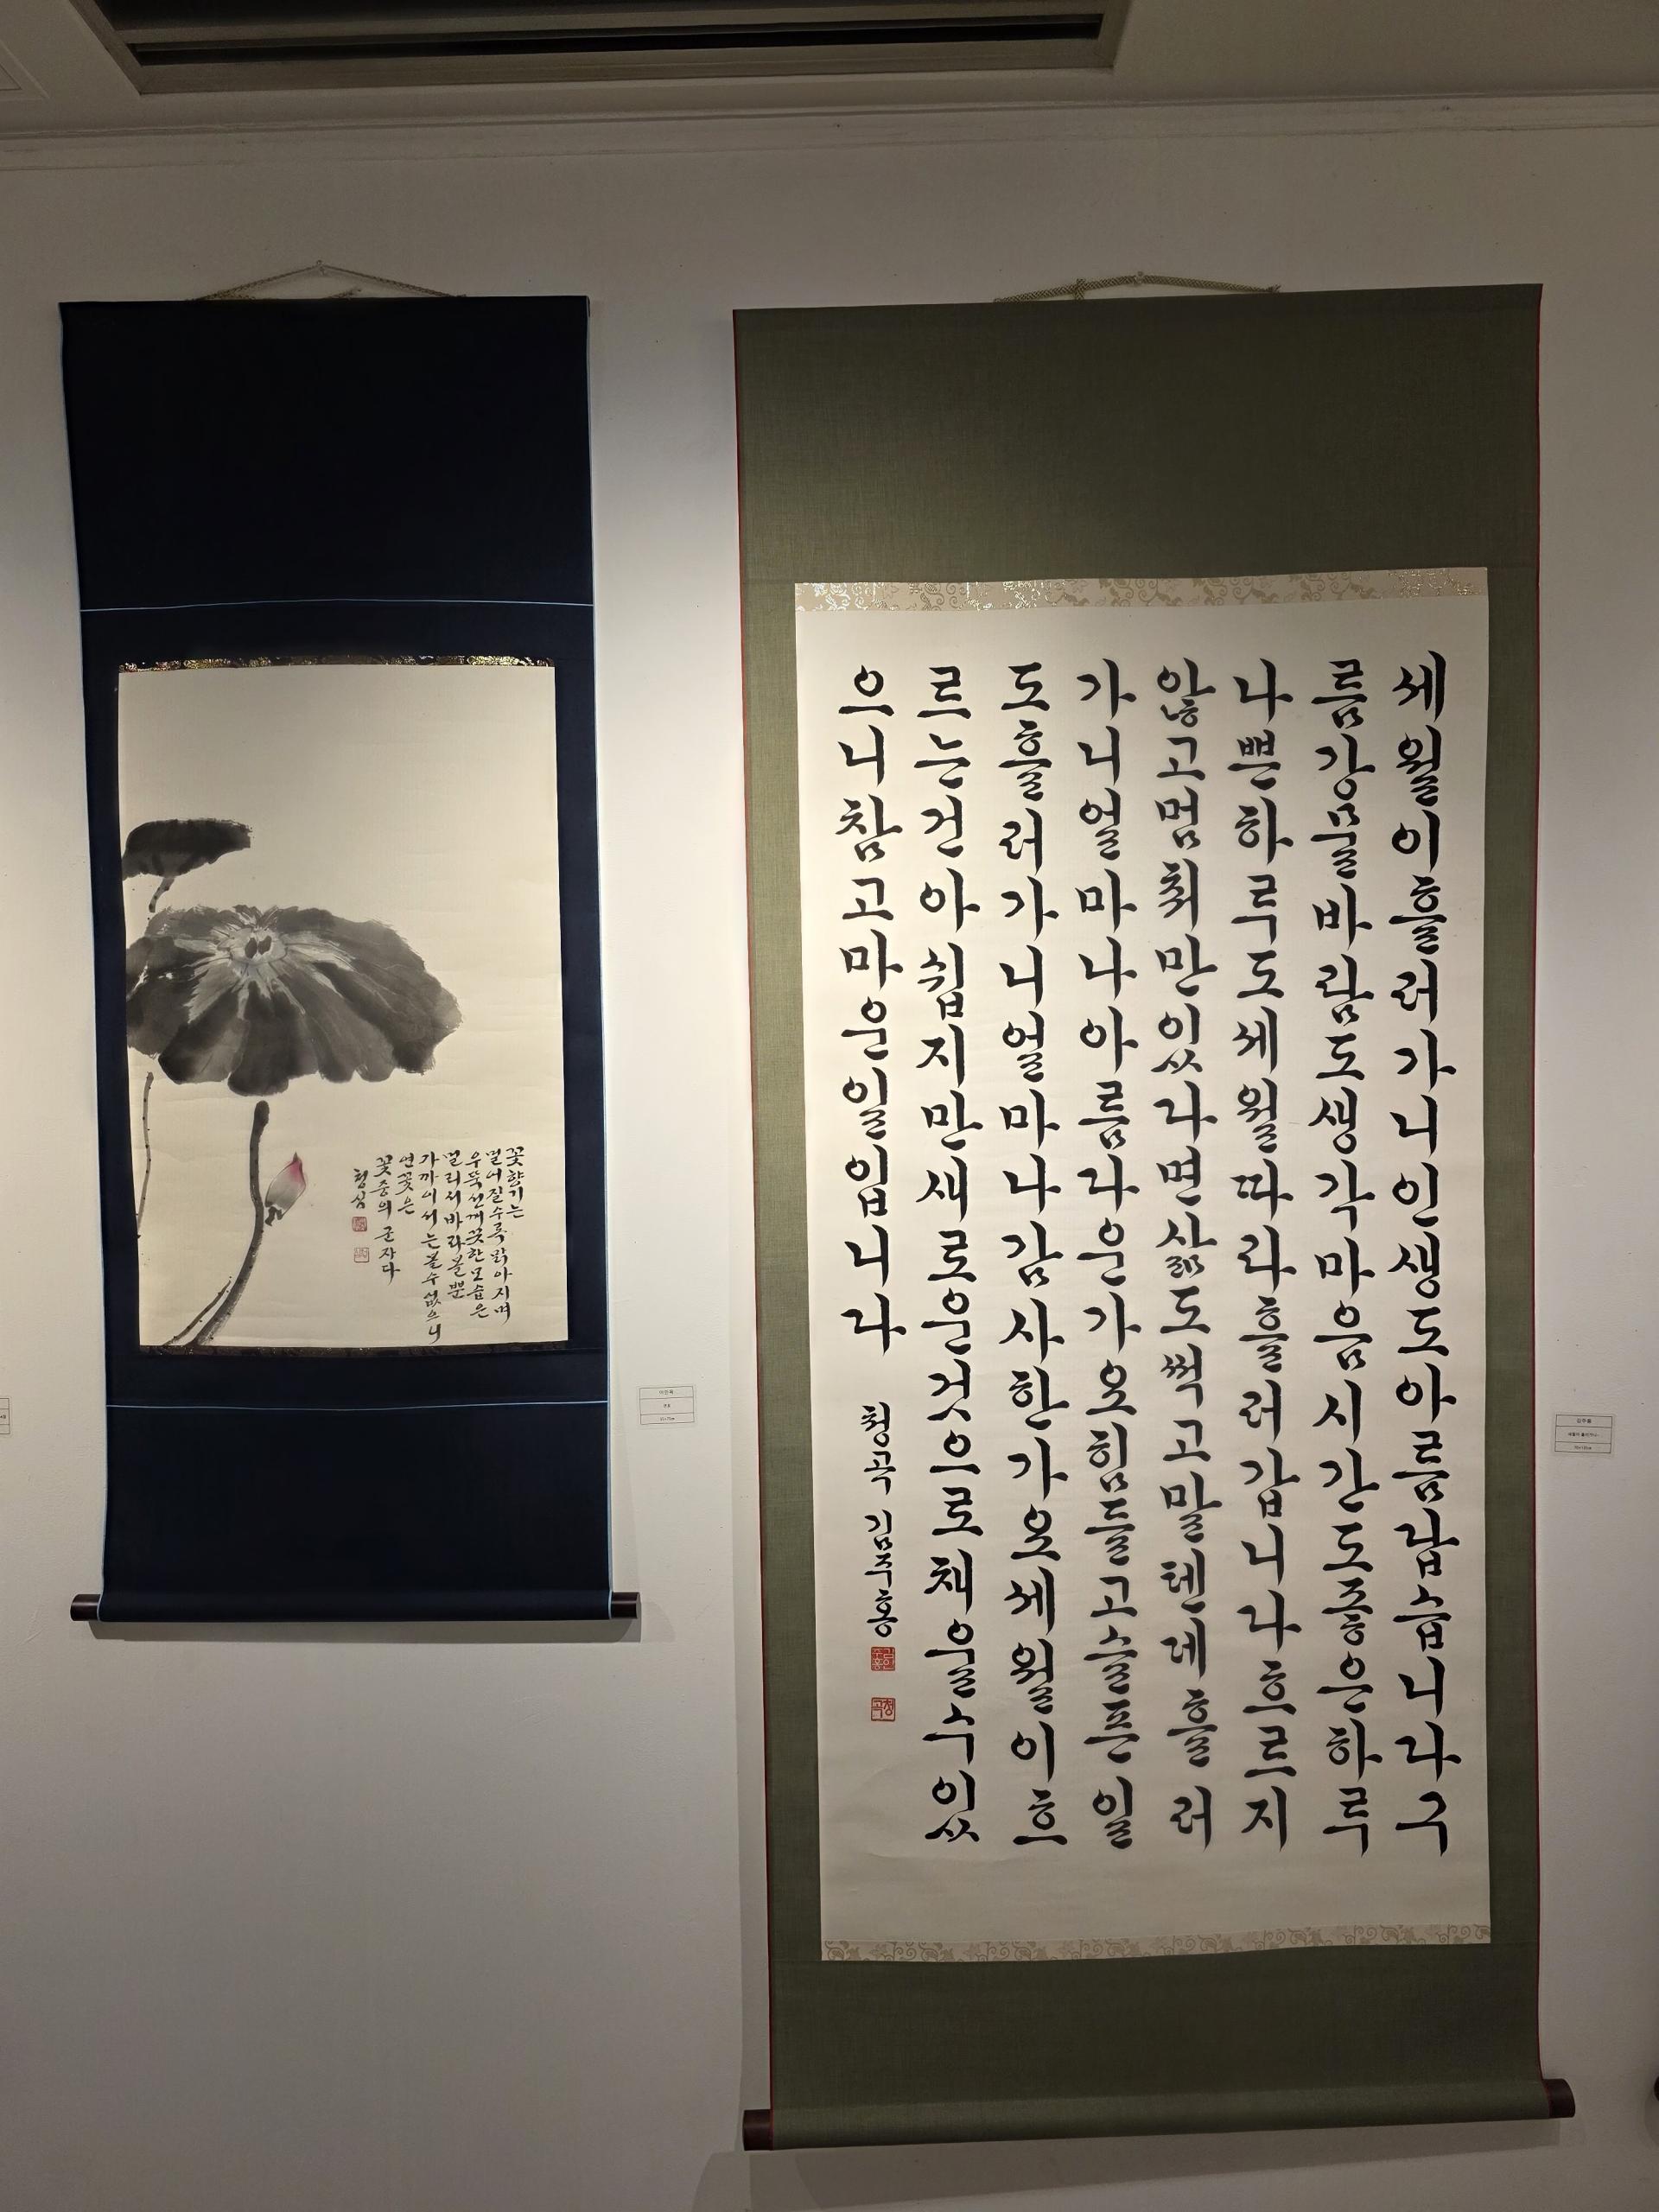 세월이흘러가니인생도아름답습니다구
름강물바람도생각마음시간도좋은하루
나쁜하루도세월따라흘러갑니다흐르지
않고멈춰만있다면삶도썩고말텐데흘러
가니얼마나아름다운가요힘들고슬픈일
도흘러가니얼마나감사한가요세월이흐
르는건아쉽지만새로운것으로채울수있
으니참고마운일입니다
청곡 김주홍
꽃향기는
멀어질수록맑아지며
우뚝선깨끗한모습은
멀리서바라볼뿐
가까이서는볼수없으니
연꽃은
꽃중의 군자다
청심